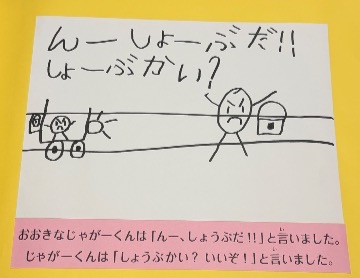 んーしょーぶだ!!
しょーぶかい?
おおきなじゃがーくんは「んー、しょうぶだ!!」と言いました。
じゃがーくんは「しょうぶかい? いいぞ!」と言いました。